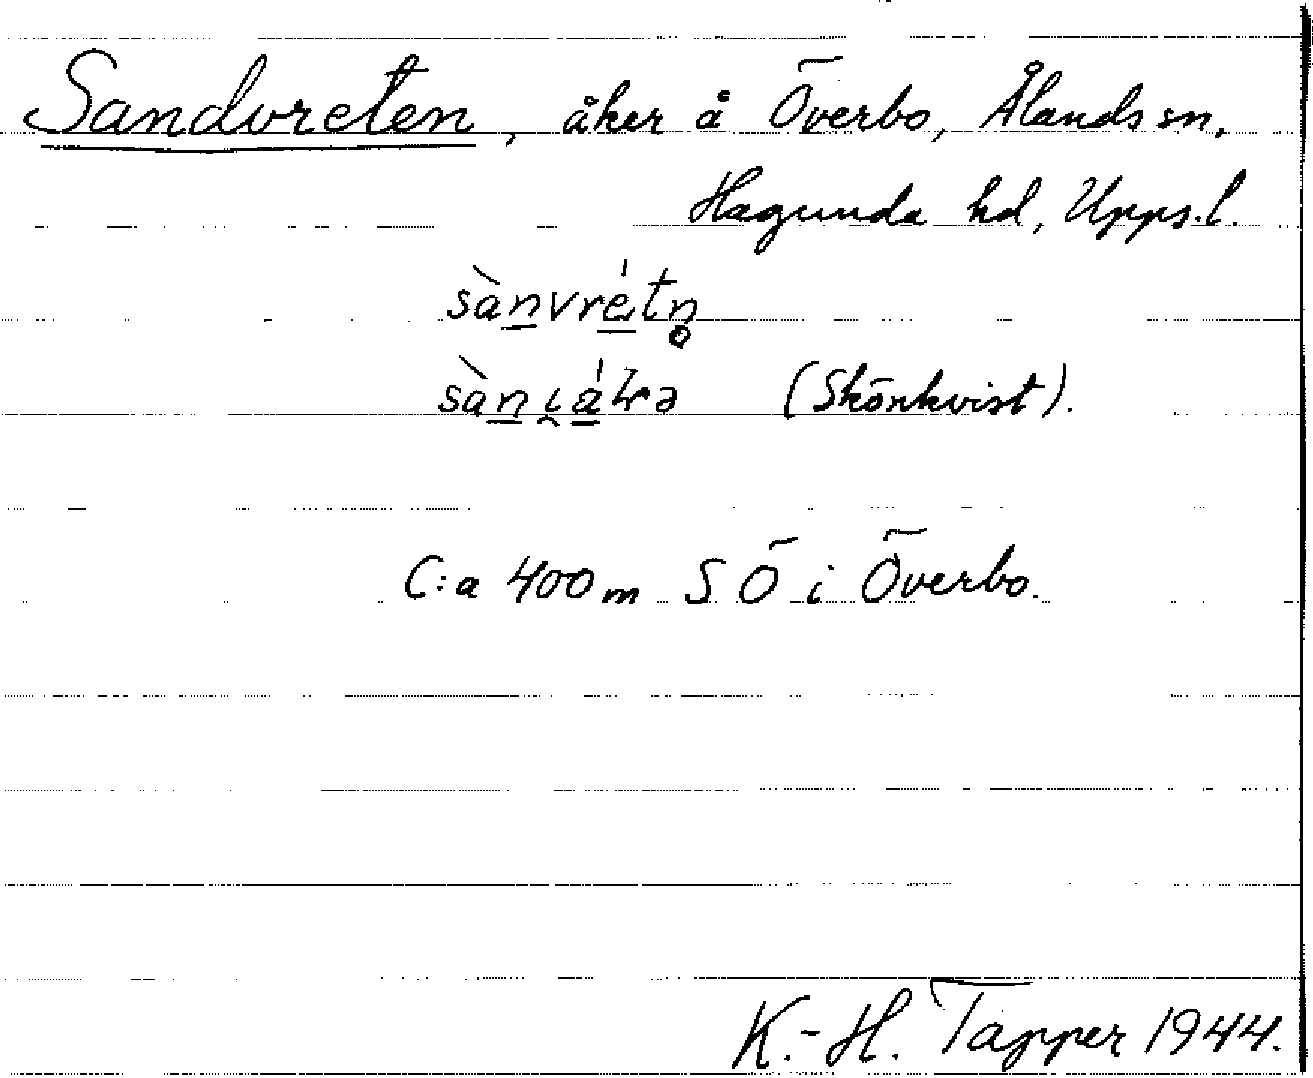 Sandvreten, åker å Överbo, Ålands sn,
Hagunda hd, Upps.l.
sànvrétn̥
(Skönkvist).
C:a 400 m S Ö i Överbo.
K.-H. Tapper 1944.